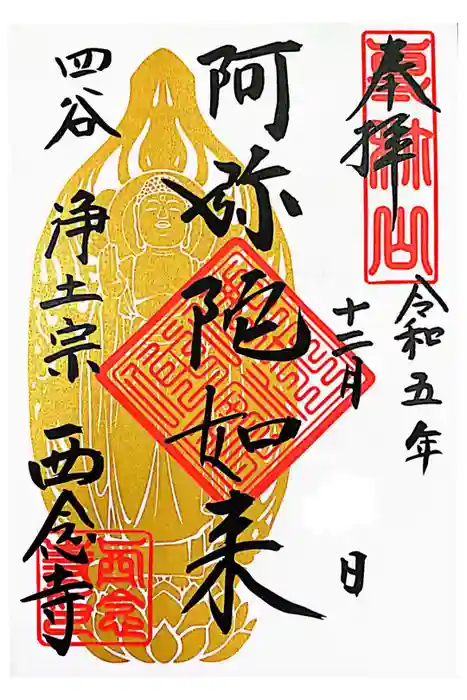 奉拝
令和五年
十二月 日
阿弥陀如来
四谷
浄土宗 西念寺